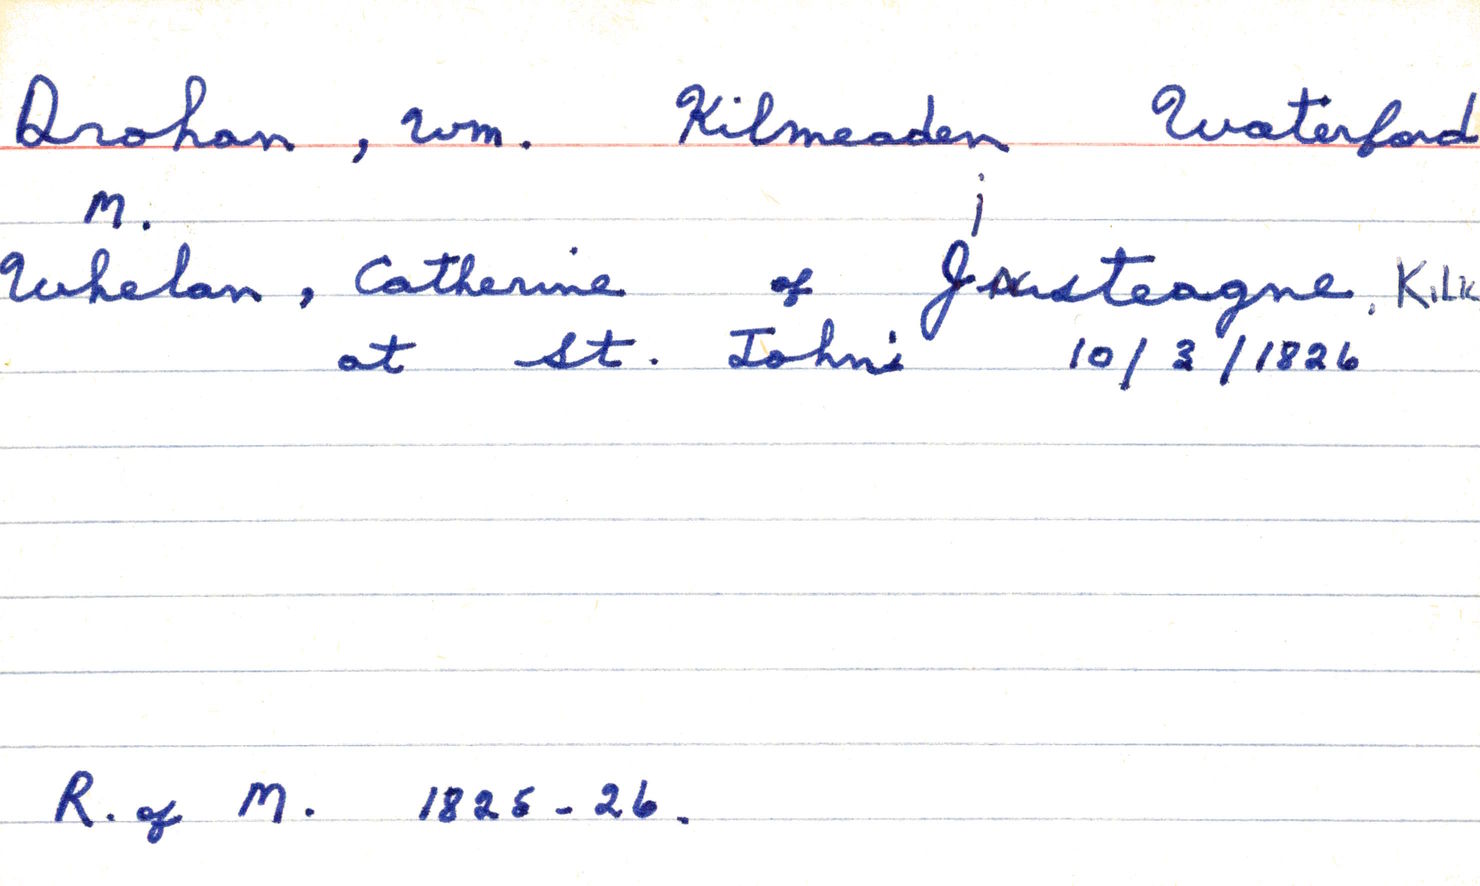 Drohan, Wm. Kilmeaden Waterford
M.
Whelan, Catherine of Jnisteagne, Kilk
at St. John's 10/3/1826
R. of M. 1825-26.